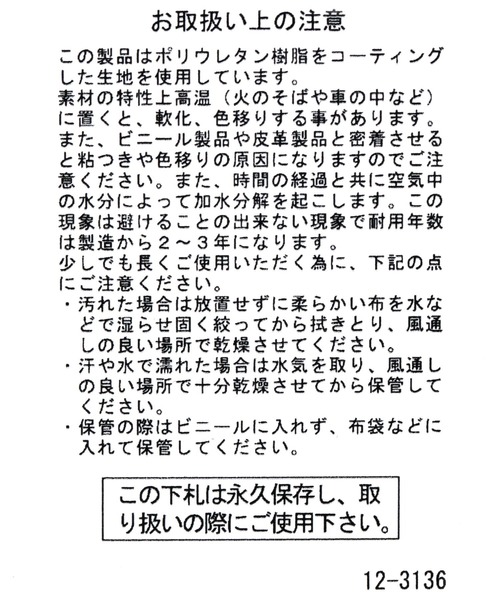 お取扱い上の注意
この製品はポリウレタン樹脂をコーティング
した生地を使用しています。
素材の特性上高温（火のそばや車の中など）
に置くと、軟化、色移りする事があります。
また、ビニール製品や皮革製品と密着させる
と粘つきや色移りの原因になりますのでご注
意ください。また、時間の経過と共に空気中
の水分によって加水分解を起こします。この
現象は避けることの出来ない現象で耐用年数
は製造から２～３年になります。
少しでも長くご使用いただく為に、下記の点
にご注意ください。
・汚れた場合は放置せずに柔らかい布を水な
どで湿らせ固く絞ってから拭きとり、風通
しの良い場所で乾燥させてください。
・汗や水で濡れた場合は水気を取り、風通し
の良い場所で十分乾燥させてから保管して
ください。
・保管の際はビニールに入れず、布袋などに
入れて保管してください。
この下札は永久保存し、取
り扱いの際にご使用下さい。
12-3136